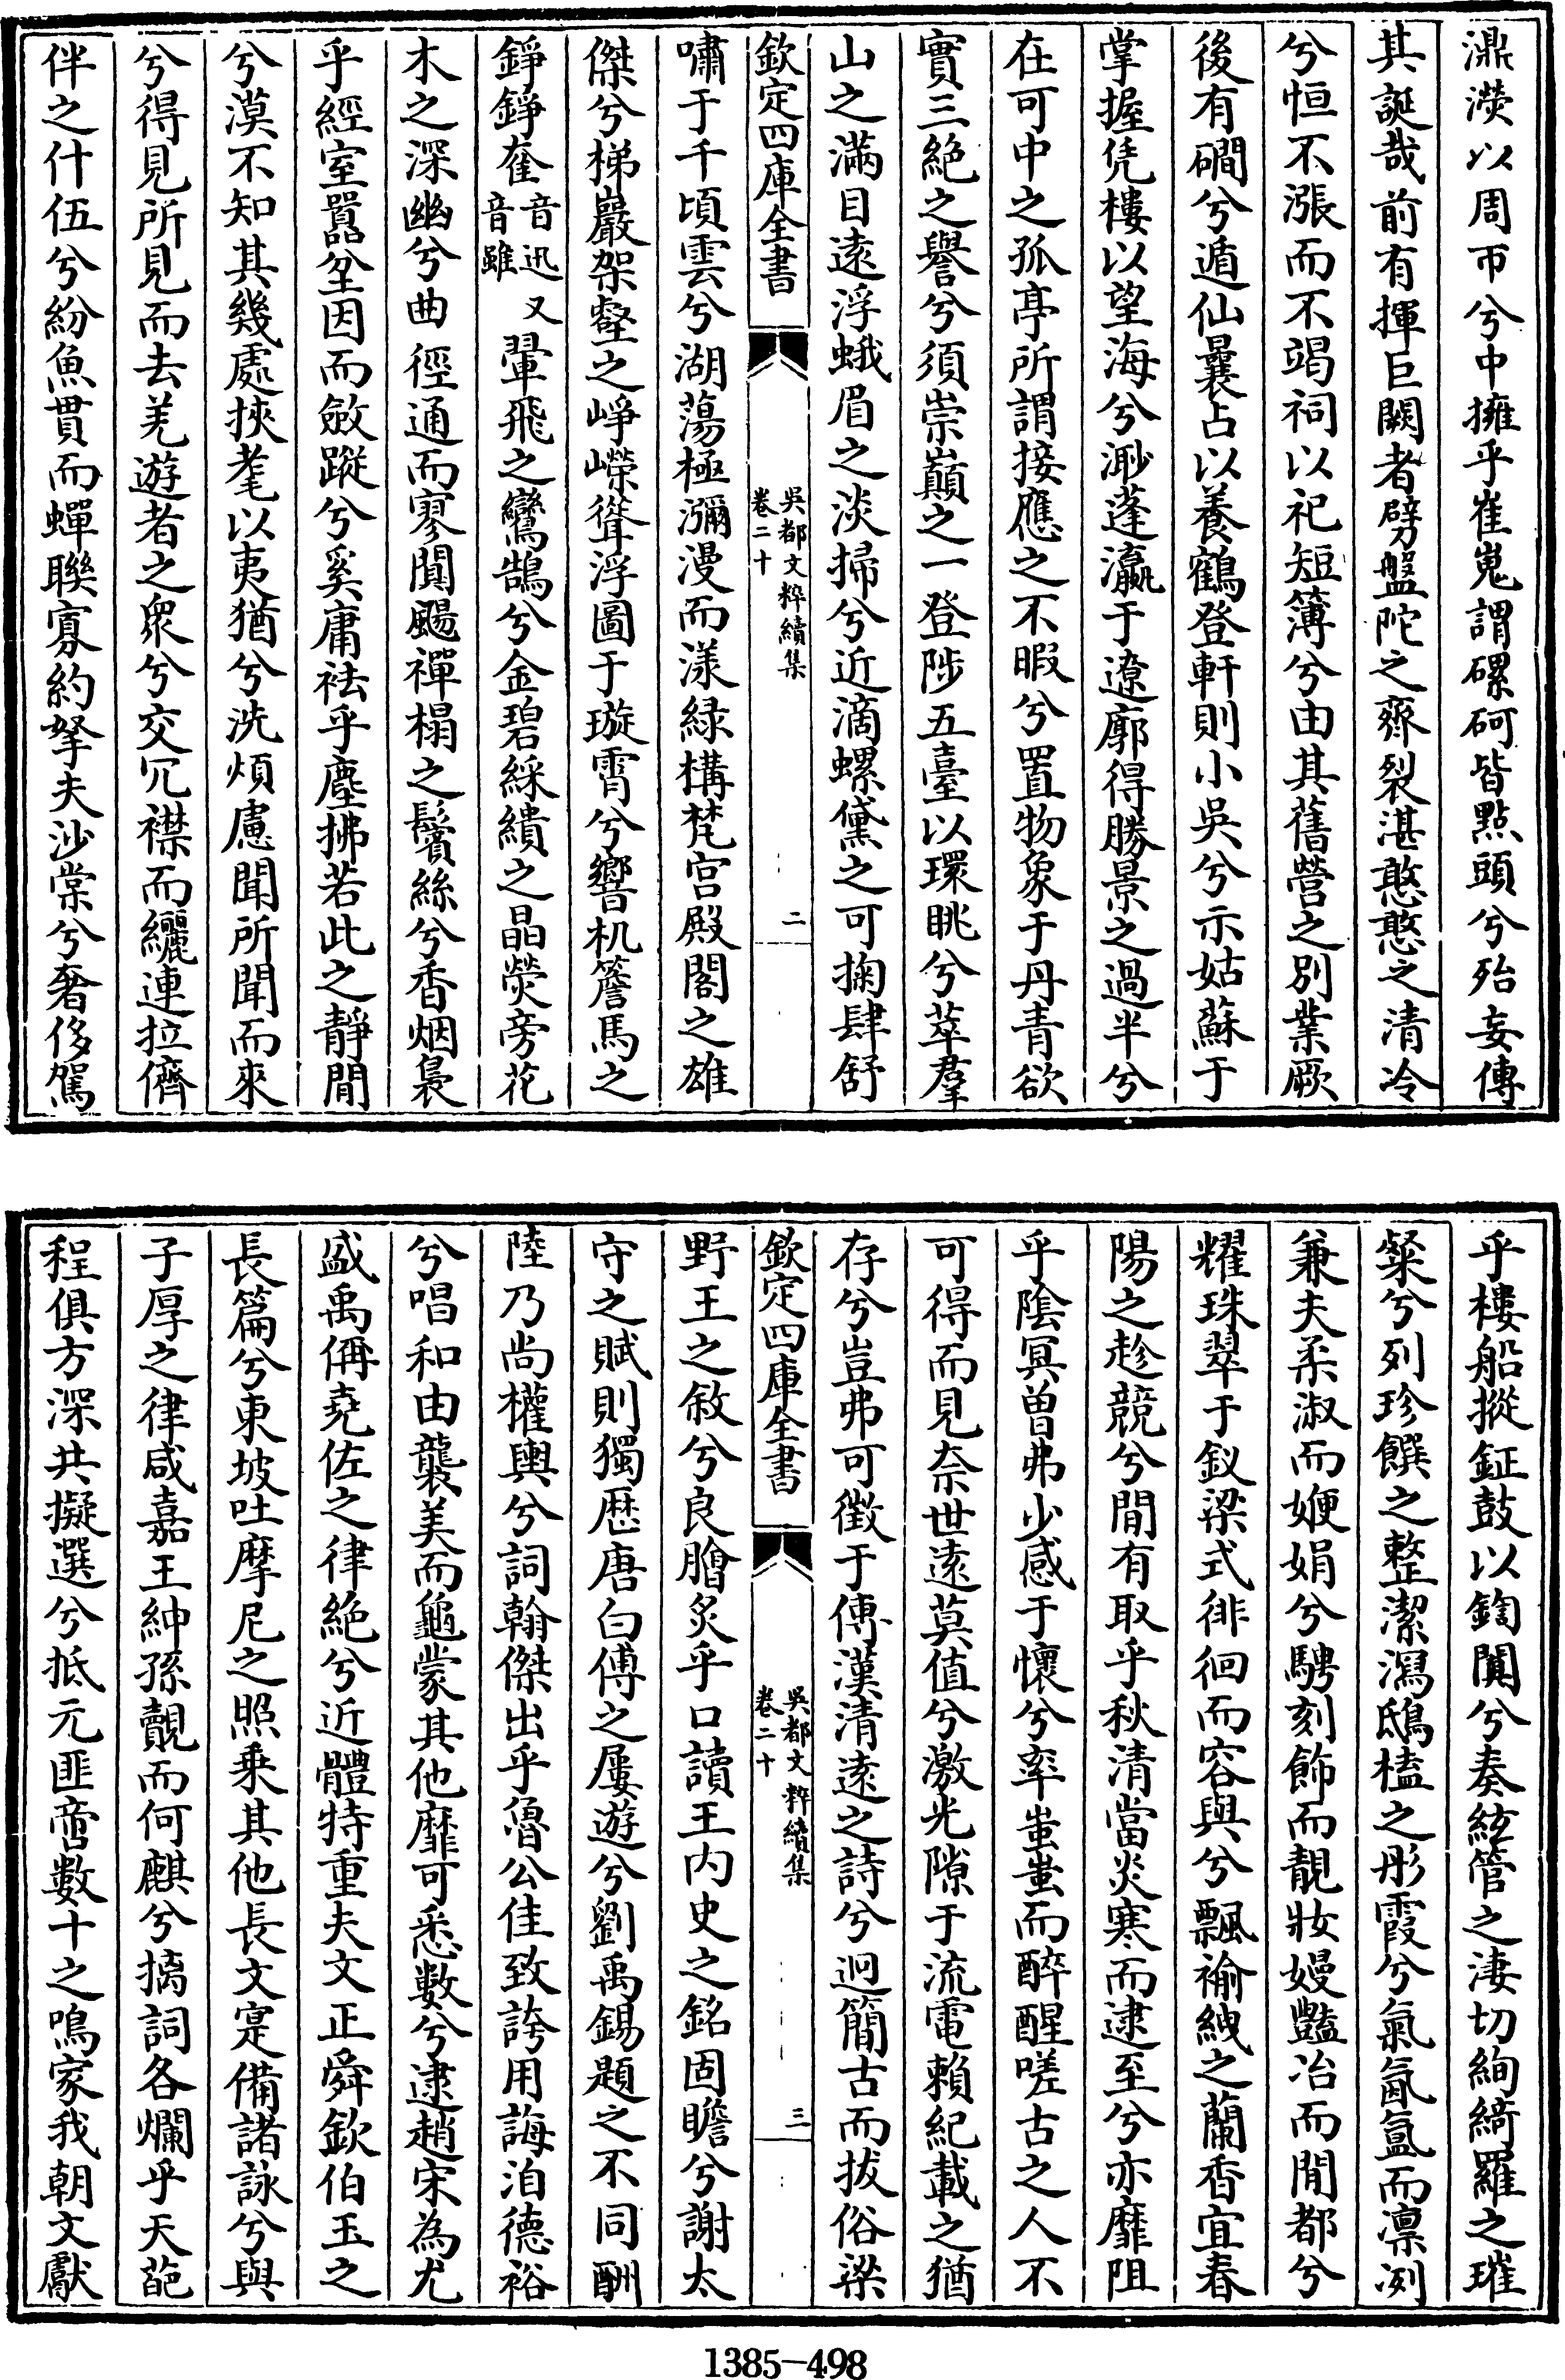 濎濙以周帀兮中擁乎崔嵬謂磥砢皆點頭兮殆妄傳
其誕哉前有揮巨闕者劈盤陀之齊裂湛憨憨之清冷
兮恒不漲而不竭祠以祀短簿兮由其舊營之別業厥
後有磵兮遁仙曩占以養鶴登軒則小吳兮示姑蘇于
掌握凭樓以望海兮渺蓬瀛于遼廓得勝景之過半兮
在可中之孤亭所謂接應之不暇兮置物象于丹青欲
實三絶之譽兮須崇巔之一登陟五臺以環眺兮萃羣
山之滿目遠浮蛾眉之淡掃兮近滴螺黛之可掬肆舒
欽定四庫全書
吳都文粹續集
卷二十
二
嘯于千頃雲兮湖蕩極瀰漫而漾緑構梵宫殿閣之雄
傑兮梯巖架壑之崢嶸聳浮圖于璇霄兮響机簷馬之
錚錚奞音迅又音雖翬飛之鸞鵠兮金碧綵繢之晶熒旁花
木之深幽兮曲徑通而寥闃颺禪榻之鬢絲兮香烟裊
乎經室嚣坌因而斂蹤兮奚庸袪乎塵拂若此之靜閒
兮漠不知其幾處挾耄以夷猶兮洗煩慮聞所聞而來
兮得見所見而去羌遊者之衆兮交冗襟而纚連拉儕
伴之什伍兮紛魚貫而蟬聯寡約拏夫沙棠兮奢侈駕
乎樓船摐鉦鼓以鍧闐兮奏絃管之凄切絢綺羅之璀
粲兮列珍饌之整潔瀉鴟榼之彤霞兮氣氤氲而凛冽
兼夫柔淑而㛹娟兮騁刻飾而靚妝嫚豔冶而閒都兮
耀珠翠于釵梁式徘徊而容與兮飄褕絏之蘭香宜春
陽之趁競兮間有取乎秋清當炎寒而逮至兮亦靡阻
乎陰冥曽弗少感于懷兮率蚩蚩而醉醒嗟古之人不
可得而見奈世遠莫值兮激光隙于流電賴紀載之猶
存兮豈弗可徵于傳漢清遠之詩兮迥簡古而拔俗梁
欽定四庫全書
吳都文粹續集
卷二十
三
野王之敘兮良膾炙乎口讀王内史之銘固瞻兮謝太
守之賦則獨歴唐白傅之屢遊兮劉禹錫題之不同酬
陸乃尚權輿兮詞翰傑出乎魯公佳致誇用誨洎德裕
兮唱和由襲美而龜蒙其他靡可悉數兮逮趙宋為尤
盛禹偁堯佐之律絶兮近體特重夫文正舜欽伯玉之
長篇兮東坡吐摩尼之照乗其他長文寔備諸詠兮與
子厚之律咸嘉王紳孫覿而何麒兮摛詞各爛乎天葩
程俱方深共擬選兮抵元匪啻數十之鳴家我朝文獻
1385-498